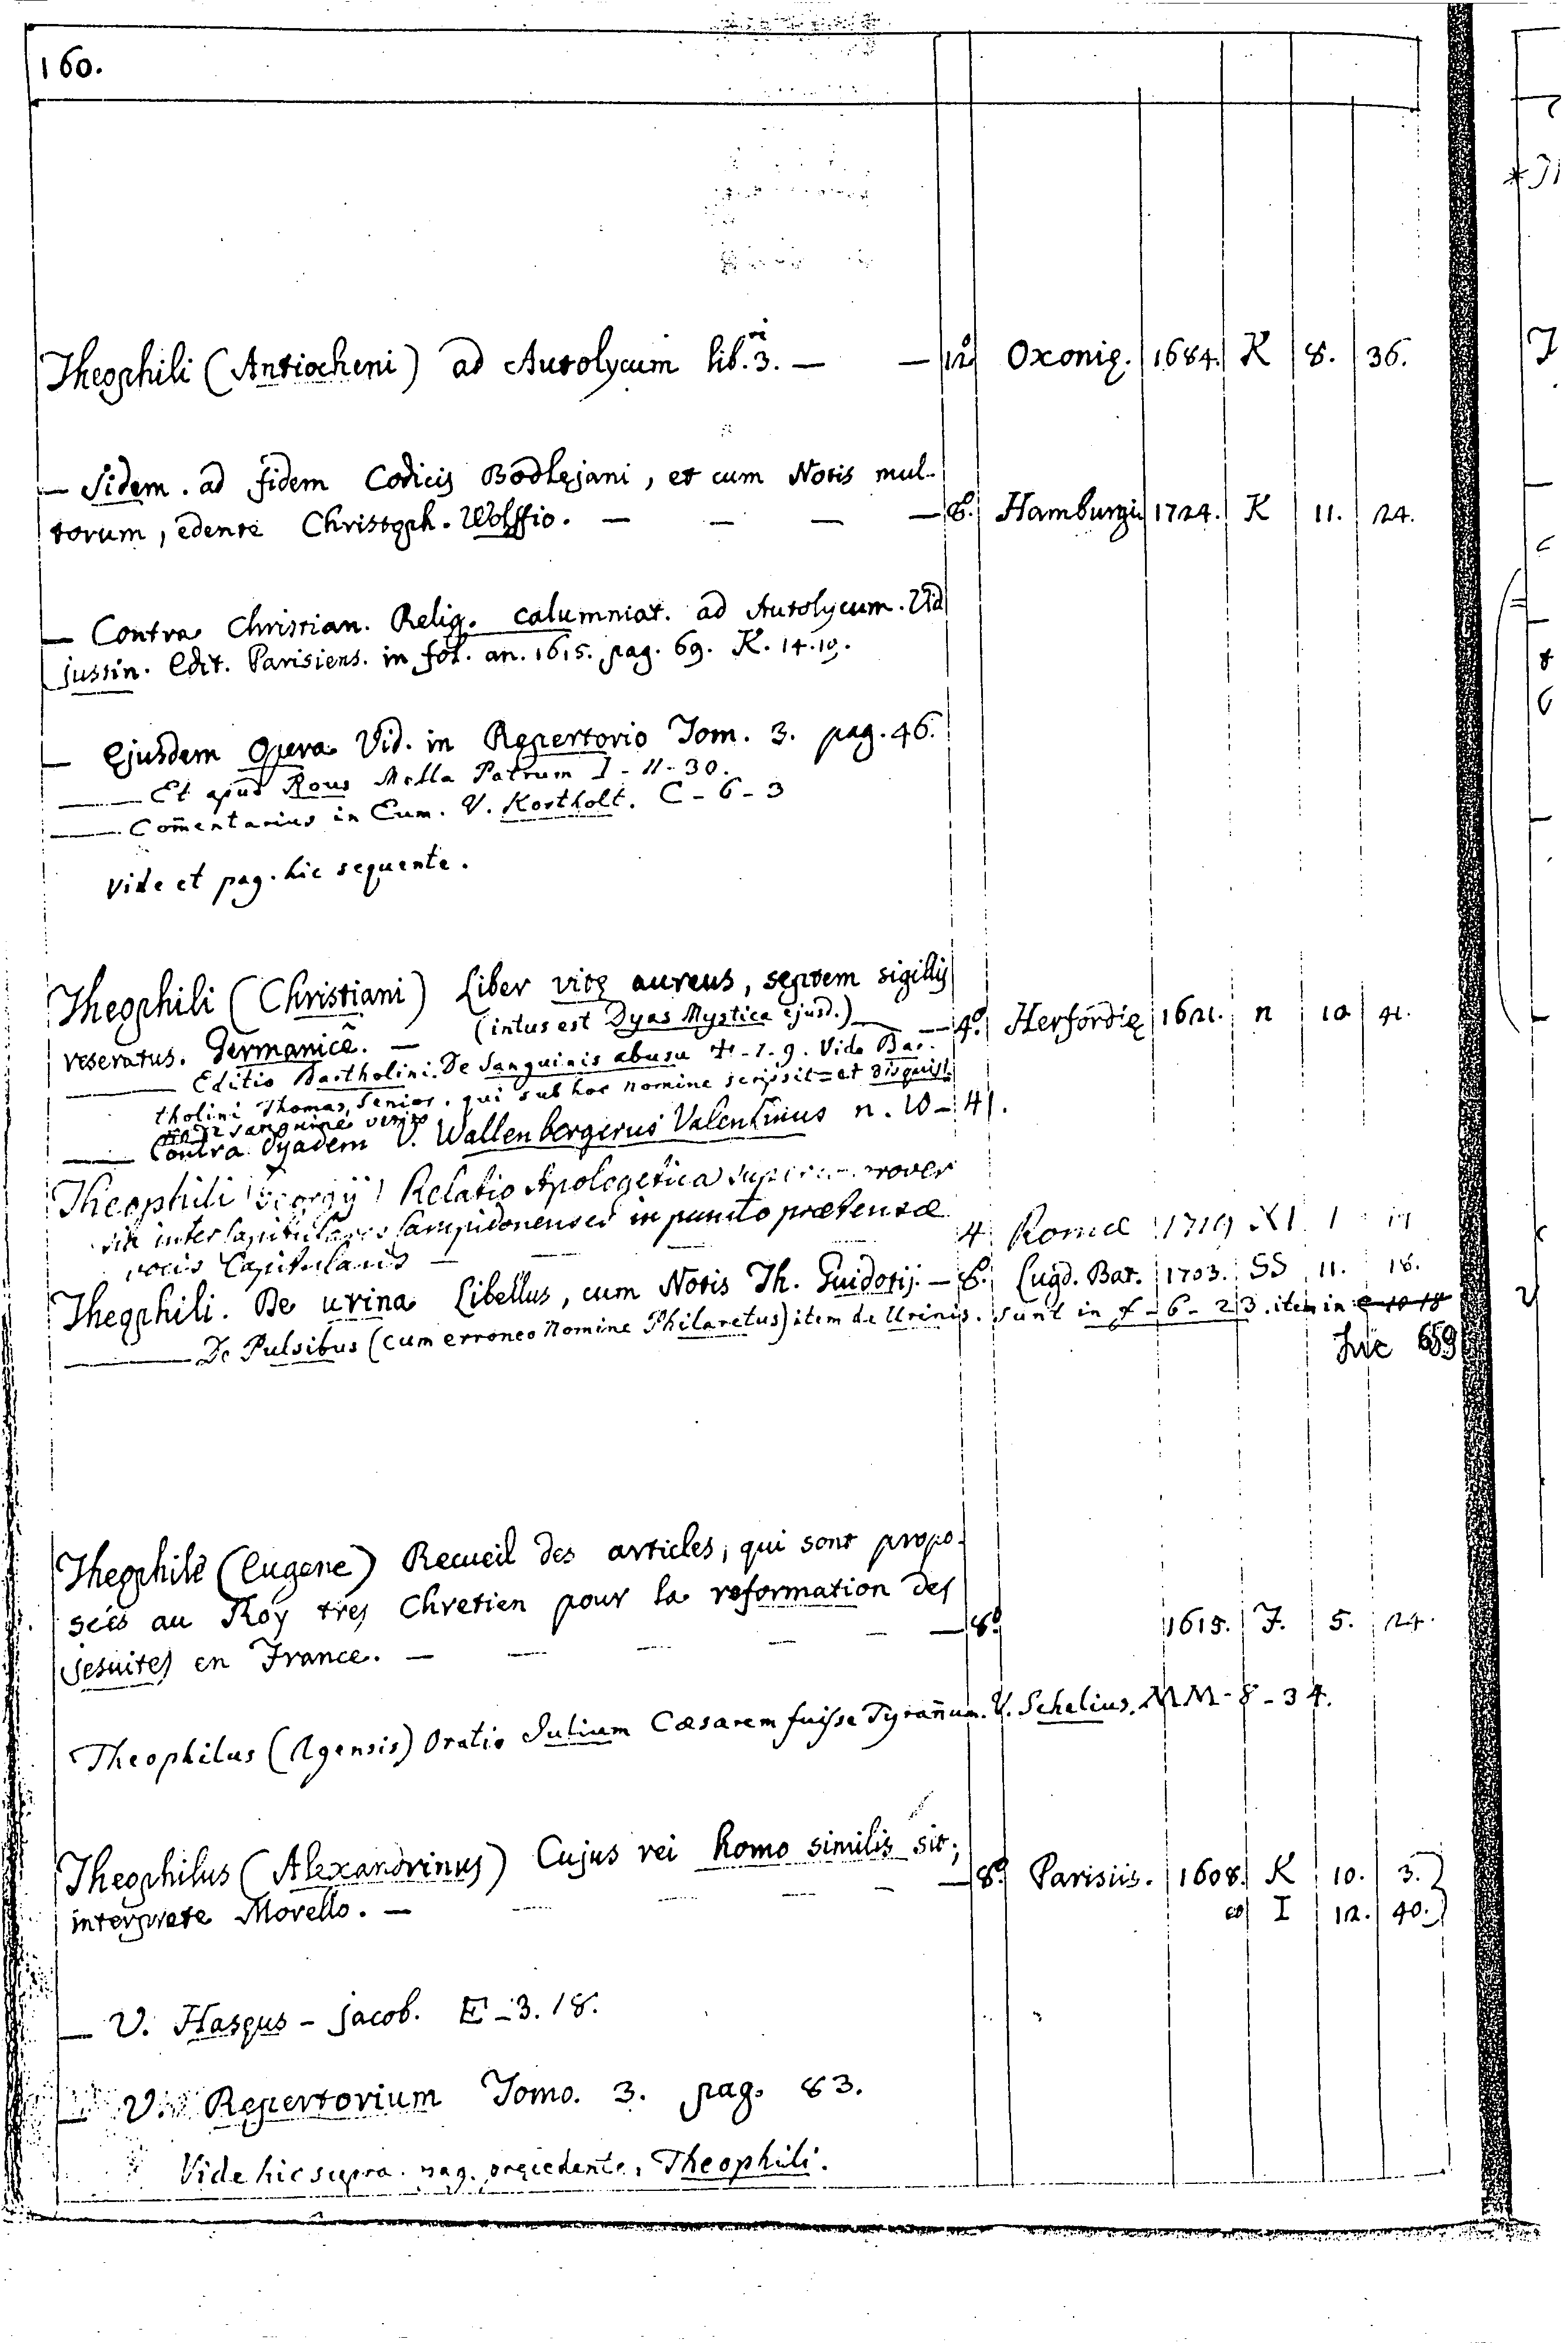 160.
Theophili (Antiocheni) ad Autolycum lib. 3. — — 12º Oxonię. 1684. K 8. 36.
— Iidem. ad fidem Codicis Bodlejani, et cum Notis mul-
torum, edente Christoph. Wolffio. — — — — 8º. Hamburgi 1724. K 11. 24.
— Contra Christian. Relig. calumniat. ad Autolycum. Vid
Justin. Edit. Parisiens. in fol. an. 1615. pag. 69. K. 14. 10.
— Ejusdem Opera Vid. in Repertorio Tom. 3. pag. 46.
— Et apud Rous Mella Patrum I - 11 - 30.
— Com̃entarius in Eum. V. Kortholt. C - 6 - 3
Vide et pag. hic sequente.
Theophili (Christiani) Liber vitę aureus, septem sigillis
reseratus. Germanicê. — (intus est Dyas Mystica ejusd.) — 4º. Herfordię 1621. n 10 41.
— Editio Bartholini. De Sanguinis abusu H - 1. 9. Vide Bar-
tholini Thomas, Senior, qui sub hoc nomine scripsit = et Disquisit.
de sanguine vetito
— Contra Dyadem V. Wallenbergerus Valentinus n. 10 - 41.
Theophili (Georgij) Relatio Apologetica super controver
siis inter Capitulares Campidonenses in puncto prætensæ
vocis Capitularis — — — 4 Romæ 1719 XI 1
Theophili. De urina Libellus, cum Notis Th. Guidotij. — 8º. Lugd. Bat. 1703. SS 11. 18.
— De Pulsibus (cum erroneo Nomine Philaretus) item de Urinis. Sunt in f - 6 - 23. item in e 10 18
huc 659
Theophile (Eugene) Recueil des articles, qui sont propo-
séés au Roy tres Chretien pour la reformation des
Jesuites en France. — — — — — — 8º 1615. F. 5. 24.
Theophilus (Agensis) Oratio Julium Cæsarem fuisse Tyrañum. V. Schelius. MM - 8 - 34.
Theophilus (Alexandrinus) Cujus rei homo similis sit;
interprete Morello. — — — — — — 8º. Parisiis. 1608. K 10. 3.
et I 12. 40.
— V. Hasęus - Jacob. E - 3. 18.
— V. Repertorium Tomo. 3. pag. 83.
Vide hic supra pag. pręcedente, Theophili.